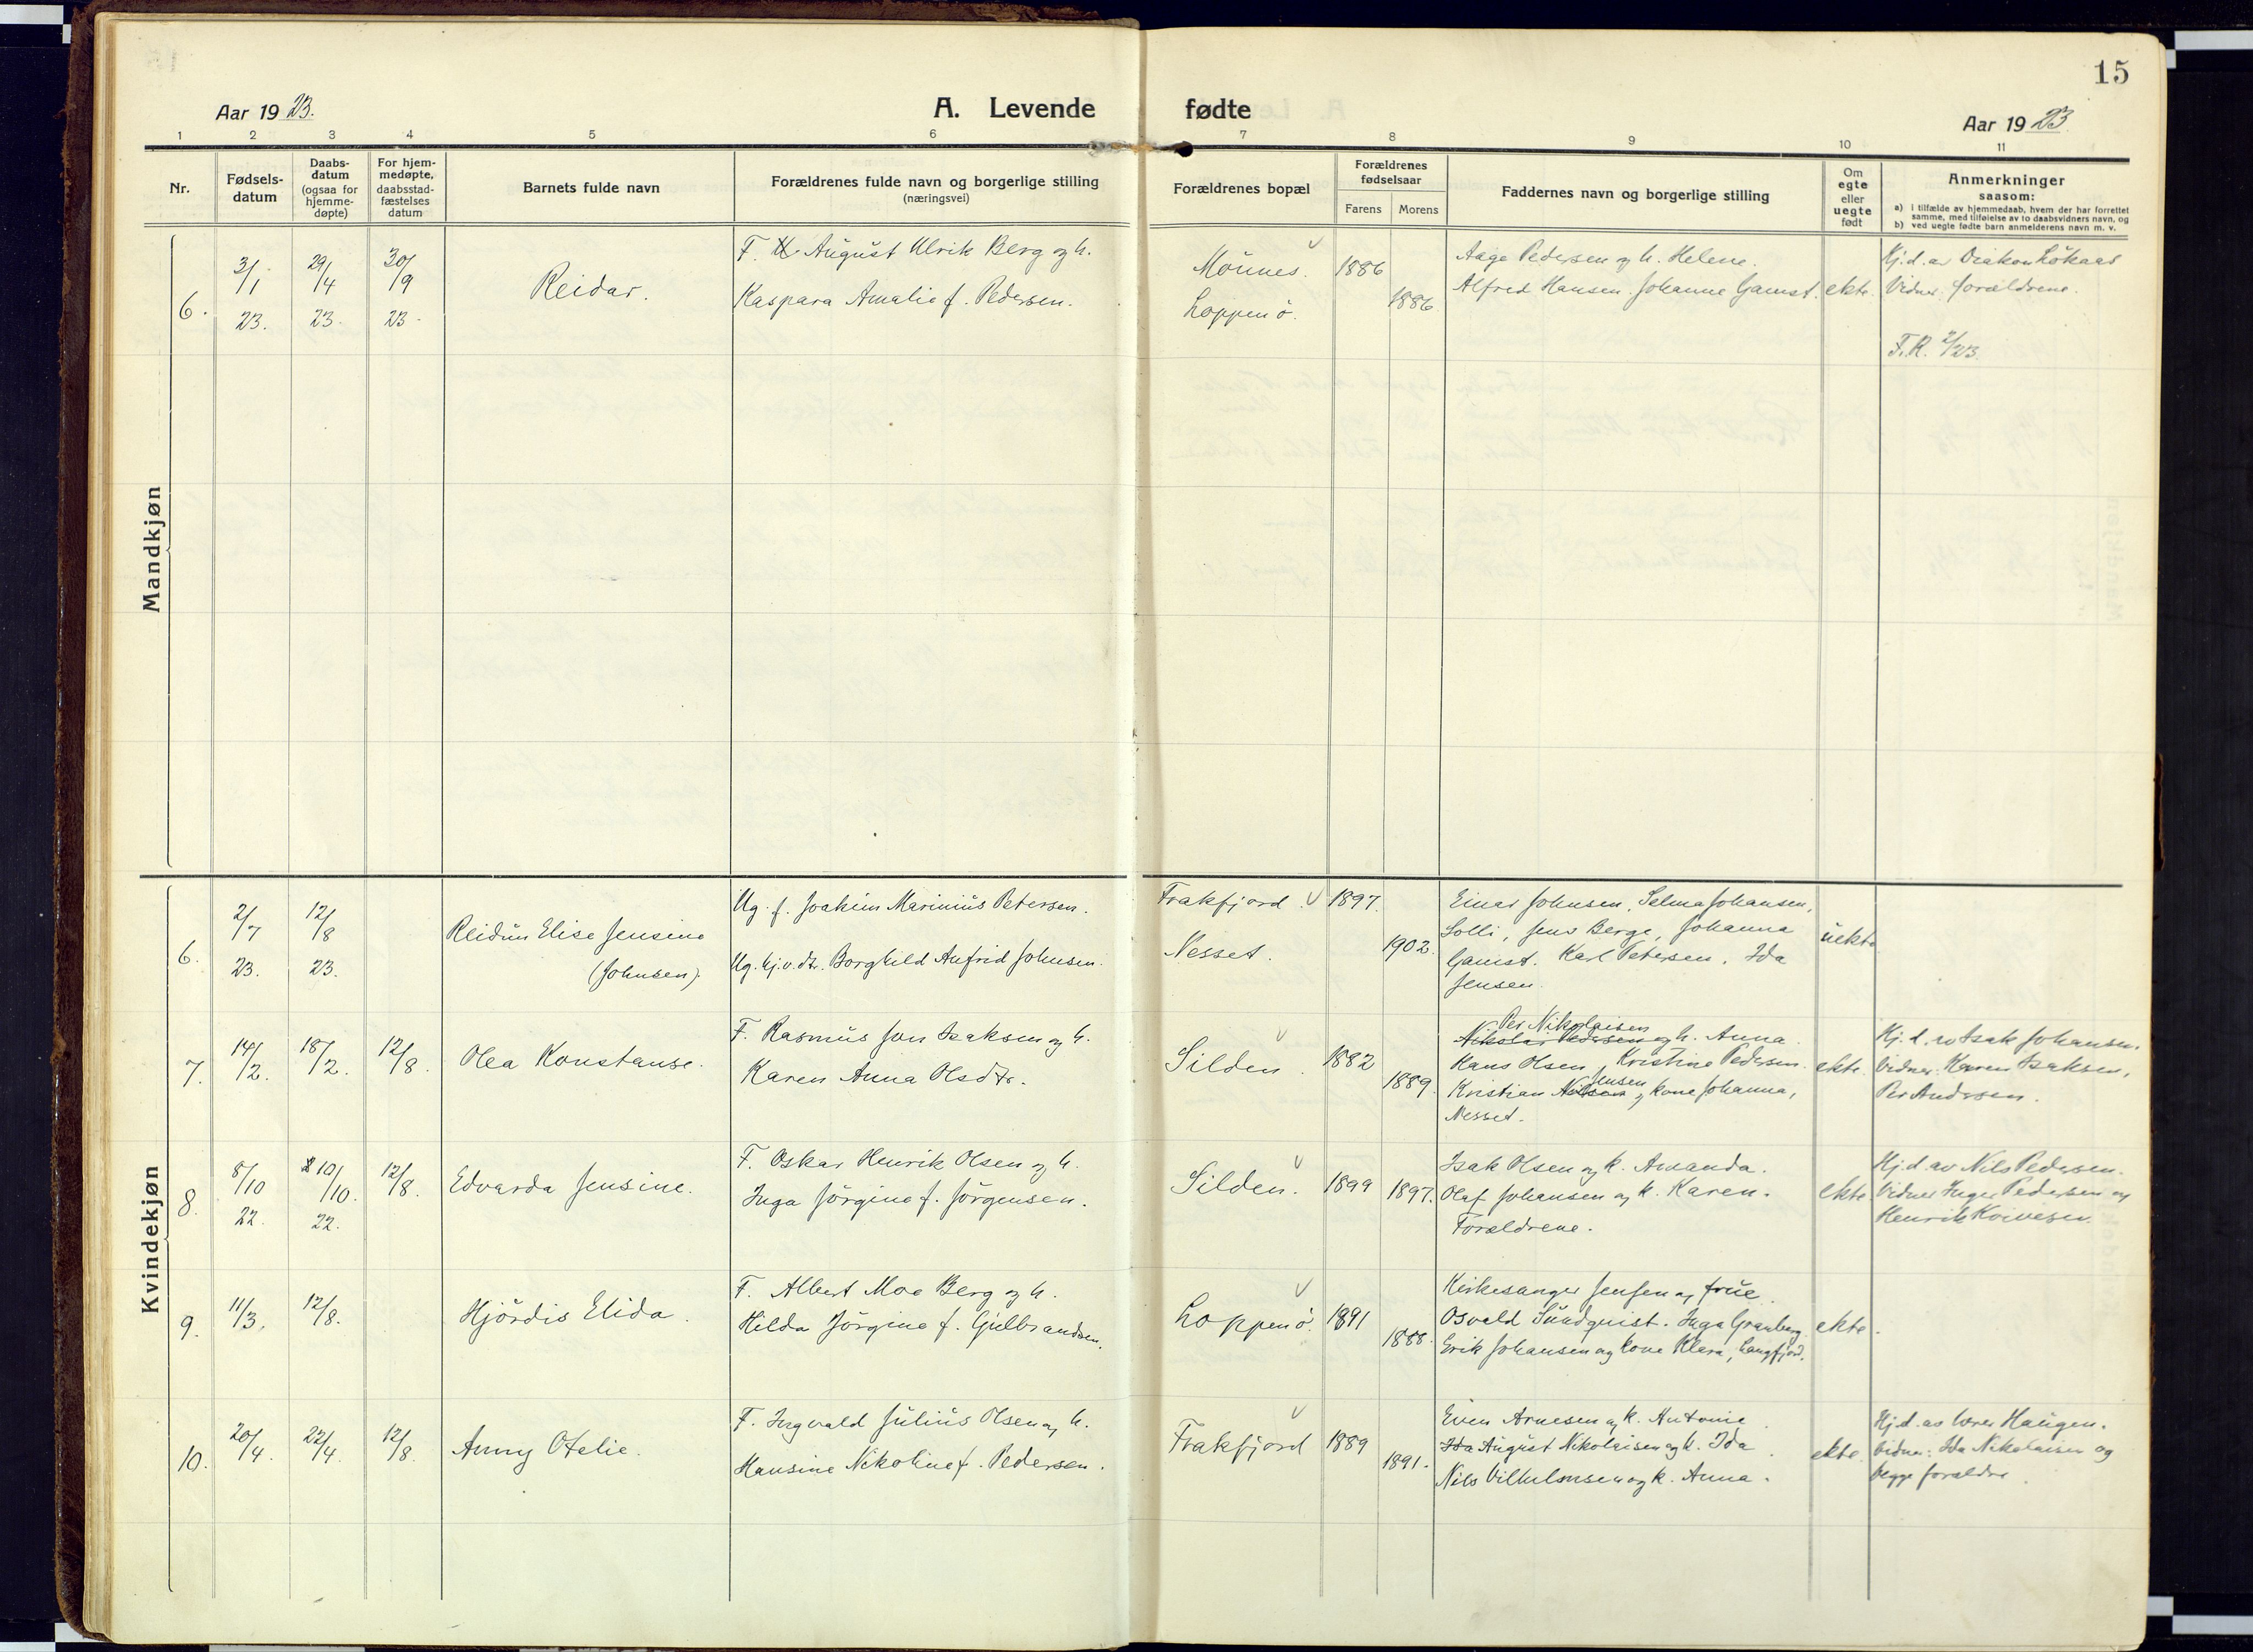 15
Aar 19 23.
A. Levende fødte
Aar 19 23
1 2 3 4 5 6 7 8 9 10 11
Nr.
Fødsels-
datum
Daabs-
datum
(ogsaa for
hjemme-
døpte)
For hjem-
medøpte,
daabsstad-
fæstelses
datum
Barnets fulde navn
Forældrenes fulde navn og borgerlige stilling
(næringsvei)
Forældrenes bopæl
Forældrenes
fødselsaar
Farens Morens
Faddernes navn og borgerlige stilling
Om
egte
eller
uegte
født
Anmerkninger
saasom:
a) i tilfælde av hjemmedaab, hvem der har forrettet
samme, med tilføielse av to daabsvidners navn, og
b) ved uegte fødte barn anmelderens navn m. v.
Mandkjøn
6.
3/1
23.
29/4
23.
30/9
23.
Reidar.
F. August Ulrik Berg og h.
Kaspara Amalie f. Pedersen.
Loppenö.
1886
1886
Aage Pedersen og h. Helene.
Alfred Hansen. Johanne Gamst.
ekte.
Hj.d. av Diakon Lökaas
Vidner: forældrene.
F.R. 2/23.
Kvindekjøn
6.
2/7
23.
12/8
23.
Reidun Elise Jensine
(Johnsen).
Ug. f. Joakim Marinius Petersen.
Ug. hj.v. dtr. Borghild Anfrid Johnsen.
Frakfjord. V
Nesset.
1897.
1902.
Einar Johnsen, Selma Johansen,
Solli, Jens Berge, Johanna
Gamst. Karl Petersen. Ida
Jensen.
uekte
7.
14/2.
18/2.
12/8.
Olea Konstanse.
F. Rasmus Jon Isaksen og h.
Karen Anna Olsdtr.
V
Silden.
1882
1889.
Per Nikolaisen
Nikolai Pedersen og h. Anna.
Hans Olsen, Kristine Pedersen.
Jensen
Kristian Nilsen og kone Johanna,
Nesset.
ekte.
Hj.d. av Isak Johansen.
Vidner: Karen Isaksen,
Per Andersen.
8.
8/10
22.
10/10.
22.
12/8.
Edvarda Jensine.
F. Oskar Henrik Olsen og h.
Inga Jörgine f. Jörgensen.
V
Silden.
1899
1897.
Isak Olsen og k. Amanda.
Olaf Johansen og k. Karen.
Forældrene.
ekte
Hj.d. av Nils Pedersen.
Vidner Inger Pedersen og
Henrik
9.
11/3.
12/8.
Hjördis Elida.
F. Albert Moe Berg og h.
Hilda Jörgine f. Gulbrandsen.
V
Loppenö.
1891
1888.
Kirkesanger Jensen og frue.
Osvald Sundquist. Inga Granberg.
Erik Johansen og kone Klara, Langfjord.
ekte.
10.
20/4.
22/4.
12/8.
Anny Otelie.
F. Ingvald Julius Olsen og h.
Hansine Nikoline f. Pedersen.
V
Frakfjord
1889
1891.
Even Arnesen og k. Antonie.
Ida August Nikolaisen og k. Ida.
Nils Vilhelmsen og k. Anna.
ekte.
Hj.d. av lærer Haugen.
Vidner: Ida Nikolaisen og
begge forældre.